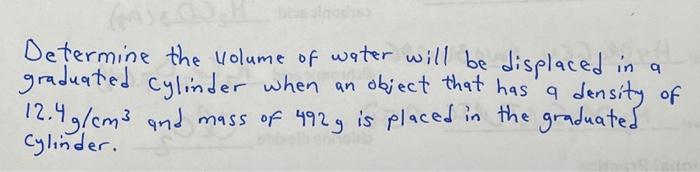 Determine the volume of water will be displaced in a
graduated cylinder when an object that has a density of
12.4 g/cm³ and mass of 492 g is placed in the graduated
cylinder.